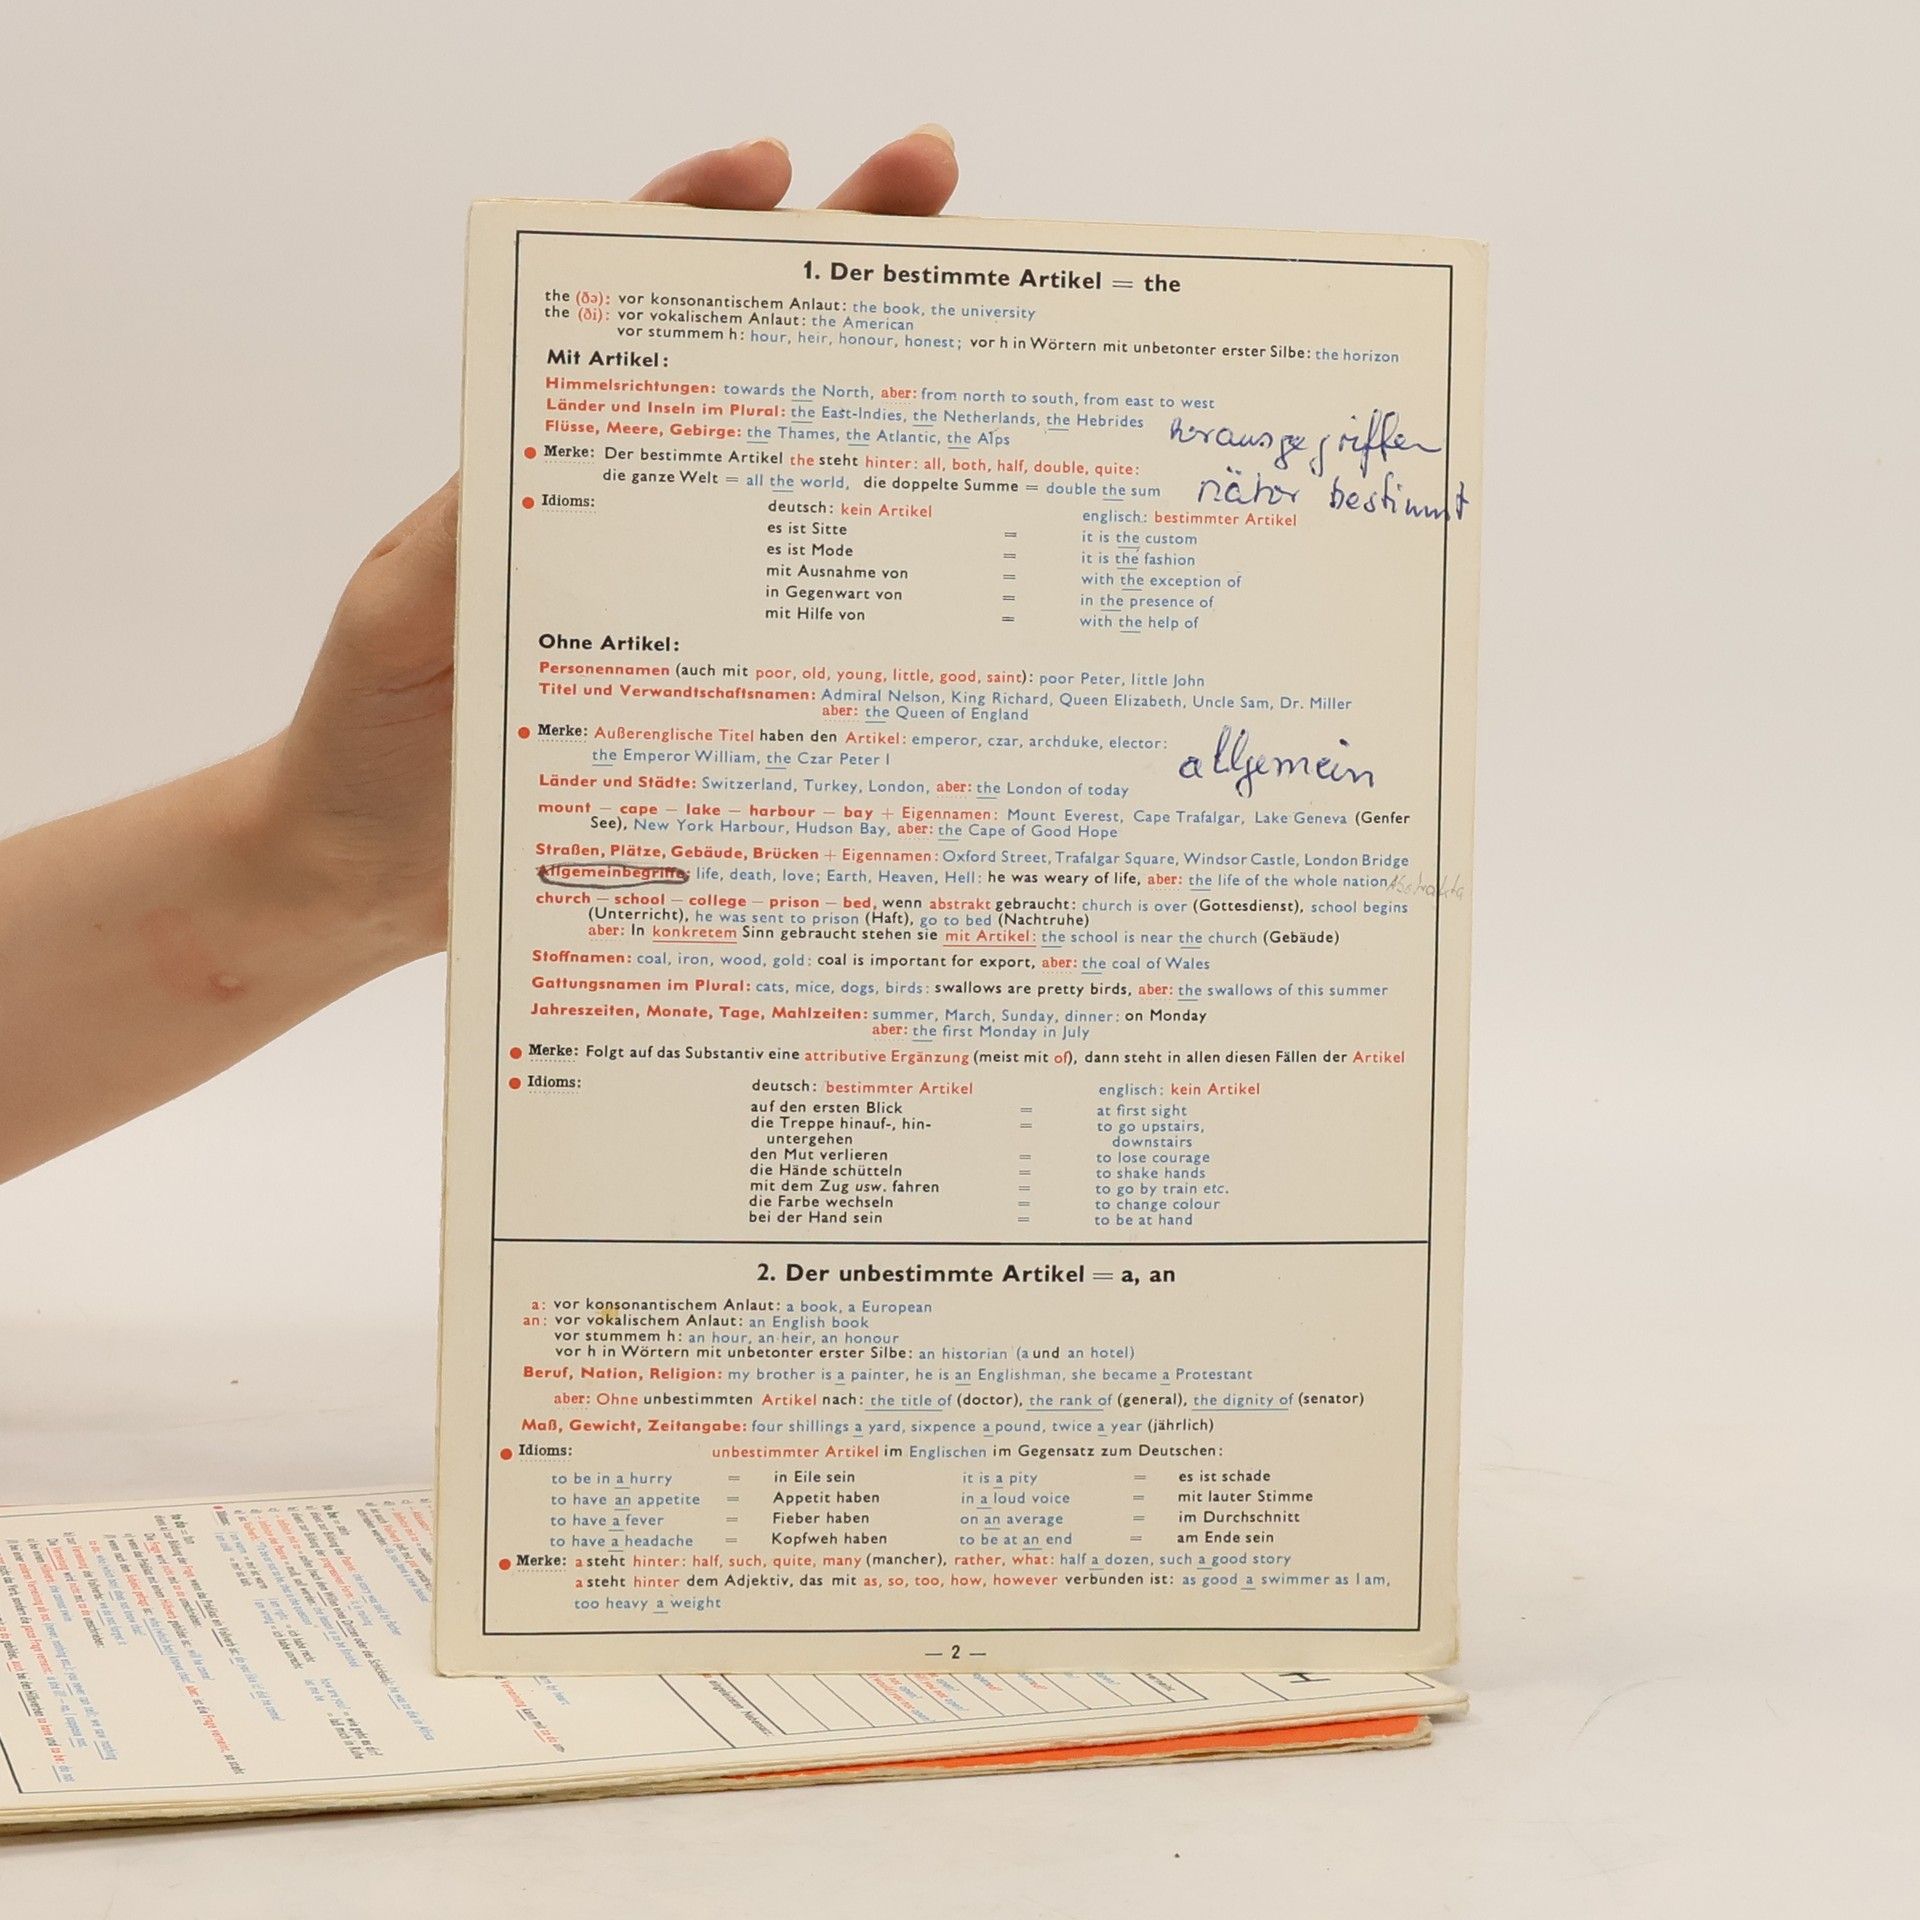 1. Der bestimmte Artikel = the
the (ðə): vor konsonantischem Anlaut: the book, the university
the (ði): vor vokalischem Anlaut: the American
vor stummem h: hour, heir, honour, honest; vor h in Wörtern mit unbetonter erster Silbe: the horizon
Mit Artikel:
Himmelsrichtungen: towards the North, aber: from north to south, from east to west
Länder und Inseln im Plural: the East-Indies, the Netherlands, the Hebrides
Flüsse, Meere, Gebirge: the Thames, the Atlantic, the Alps
herausgegriffen
Merke: Der bestimmte Artikel the steht hinter: all, both, half, double, quite:
die ganze Welt = all the world, die doppelte Summe = double the sum
bestimmt
Idioms:
deutsch: kein Artikel englisch: bestimmter Artikel
es ist Sitte = it is the custom
es ist Mode = it is the fashion
mit Ausnahme von = with the exception of
in Gegenwart von = in the presence of
mit Hilfe von = with the help of
Ohne Artikel:
Personennamen (auch mit poor, old, young, little, good, saint): poor Peter, little John
Titel und Verwandtschaftsnamen: Admiral Nelson, King Richard, Queen Elizabeth, Uncle Sam, Dr. Miller
aber: the Queen of England
Merke: Außerenglische Titel haben den Artikel: emperor, czar, archduke, elector:
the Emperor William, the Czar Peter I
allgemein
Länder und Städte: Switzerland, Turkey, London, aber: the London of today
mount – cape – lake – harbour – bay + Eigennamen: Mount Everest, Cape Trafalgar, Lake Geneva (Genfer
See), New York Harbour, Hudson Bay, aber: the Cape of Good Hope
Straßen, Plätze, Gebäude, Brücken + Eigennamen: Oxford Street, Trafalgar Square, Windsor Castle, London Bridge
Allgemeinbegriffe: life, death, love; Earth, Heaven, Hell: he was weary of life, aber: the life of the whole nation Abstrakta
church – school – college – prison – bed, wenn abstrakt gebraucht: church is over (Gottesdienst), school begins
(Unterricht), he was sent to prison (Haft), go to bed (Nachtruhe)
aber: In konkretem Sinn gebraucht stehen sie mit Artikel: the school is near the church (Gebäude)
Stoffnamen: coal, iron, wood, gold: coal is important for export, aber: the coal of Wales
Gattungsnamen im Plural: cats, mice, dogs, birds: swallows are pretty birds, aber: the swallows of this summer
Jahreszeiten, Monate, Tage, Mahlzeiten: summer, March, Sunday, dinner: on Monday
aber: the first Monday in July
Merke: Folgt auf das Substantiv eine attributive Ergänzung (meist mit of), dann steht in allen diesen Fällen der Artikel
Idioms:
deutsch: bestimmter Artikel englisch: kein Artikel
auf den ersten Blick = at first sight
die Treppe hinauf-, hin- = to go upstairs,
untergehen downstairs
den Mut verlieren = to lose courage
die Hände schütteln = to shake hands
mit dem Zug usw. fahren = to go by train etc.
die Farbe wechseln = to change colour
bei der Hand sein = to be at hand
2. Der unbestimmte Artikel = a, an
a: vor konsonantischem Anlaut: a book, a European
an: vor vokalischem Anlaut: an English book
vor stummem h: an hour, an heir, an honour
vor h in Wörtern mit unbetonter erster Silbe: an historian (a und an hotel)
Beruf, Nation, Religion: my brother is a painter, he is an Englishman, she became a Protestant
aber: Ohne unbestimmten Artikel nach: the title of (doctor), the rank of (general), the dignity of (senator)
Maß, Gewicht, Zeitangabe: four shillings a yard, sixpence a pound, twice a year (jährlich)
Idioms: unbestimmter Artikel im Englischen im Gegensatz zum Deutschen:
to be in a hurry = in Eile sein it is a pity = es ist schade
to have an appetite = Appetit haben in a loud voice = mit lauter Stimme
to have a fever = Fieber haben on an average = im Durchschnitt
to have a headache = Kopfweh haben to be at an end = am Ende sein
Merke: a steht hinter: half, such, quite, many (mancher), rather, what: half a dozen, such a good story
a steht hinter dem Adjektiv, das mit as, so, too, how, however verbunden ist: as good a swimmer as I am,
too heavy a weight
— 2 —